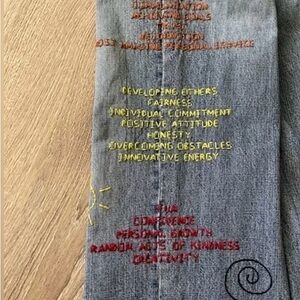 COMMUNICATION
DEVELOPING OTHERS
FAIRNESS
INDIVIDUAL COMMITMENT
POSITIVE ATTITUDE
HONESTY
OVERCOMING OBSTACLES
INNOVATIVE ENERGY
CONFIDENCE
PERSONAL GROWTH
RANDOM ACTS OF KINDNESS
CREATIVITY